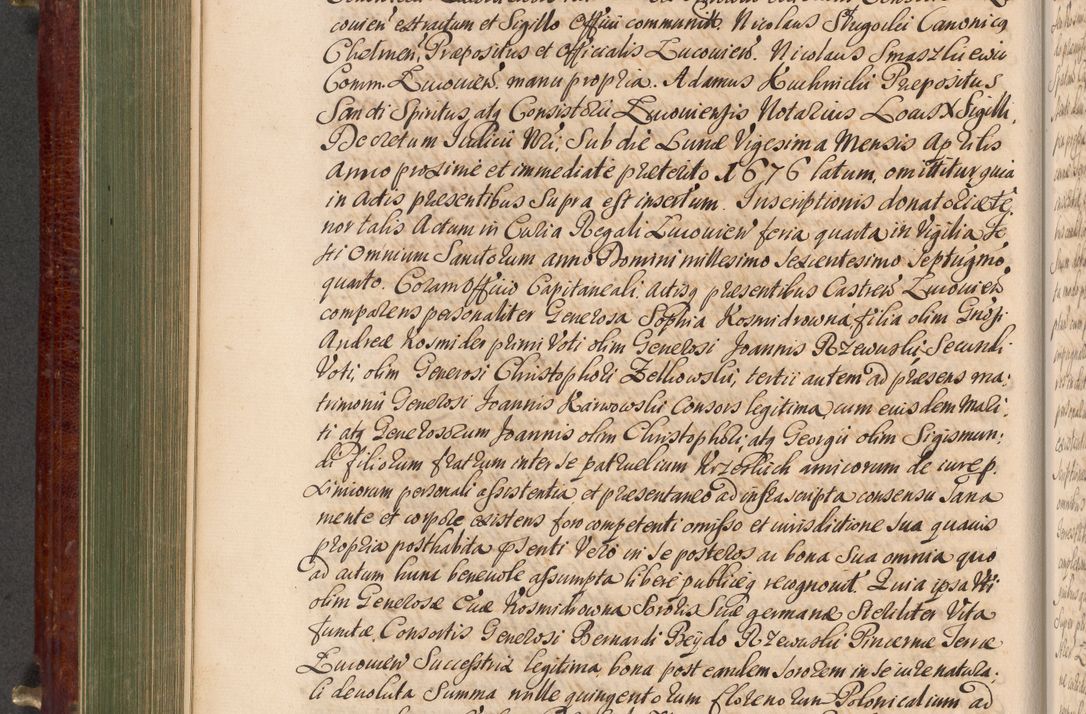 couien̄ extractum et Sigillo Officii communit. Nicolaus Skugocki Canonicq
Chelmen, Præpositus et Officialis Lucouien̄. Nicolaus Smaszkiewic
Comm Lucouien̄. manu propria. Adamus Kuchnicki Præpositus
Sancti Spiritus, atq Consistorii Lucouiensis Notarius Locus X Sigilli,
Decretum Judicii Nri, Sub die Lunæ Vigesima Mensis Aprilis
Anno proxime et immediate præterito 1676 latum, omittitur quia
in Actis præsentibus Supra est insertum. Inscriptionis donatoriæ te,
nor talis Actum in Curia Regali Lucouien̄ feria quarta in Vigilia Fe
sti Omnium Sanctorum anno Domini millesimo Sexcentesimo Septuagmo
quarto. Coram Officio Capitaneali, Actisq præsentibus Castren̄ Lucouien̄
comparens personaliter Generosa Sophia Kosmidrowna, filia olim Gnosi
Andreæ Kosmider primi Voti olim Generosi Joannis Rzewuski Secundi
Voti, olim Generosi Christophori Zelkowski, tertii autem ad præsens ma:
trimonii Generosi Joannis Karwowski Consors legitima, cum eiusdem Mari,
ti atq Generosorum Joannis olim Christophori, atq Georgii olim Sigismun:
di filiorum fratrum inter se patruelium Krzeskich amicorum de iure p.
ximiorum personali assistentia et præsentaneo ad infrascripta consensu Sana
mente et corpore existens foro competenti omisso et iurisdictione sua quauis
propria posthabita psenti Vero in se posteros ac bona Sua omnia quo
ad actum hunc beneuole assumpta libere publiceq recognouit. Quia ipsa
olim Generosæ Euæ Kosmidrowna Sororis Suæ germanæ Steriliter Vita
functæ, Consortis Generosi Bernardi Beydo Rzewuski Pincernæ Terræ
Lucouien̄ Successtrix legitima, bona post eandem sororem in se iure natura:
li deuoluta Summa mille quingentorum florenorum Polonicalium ad